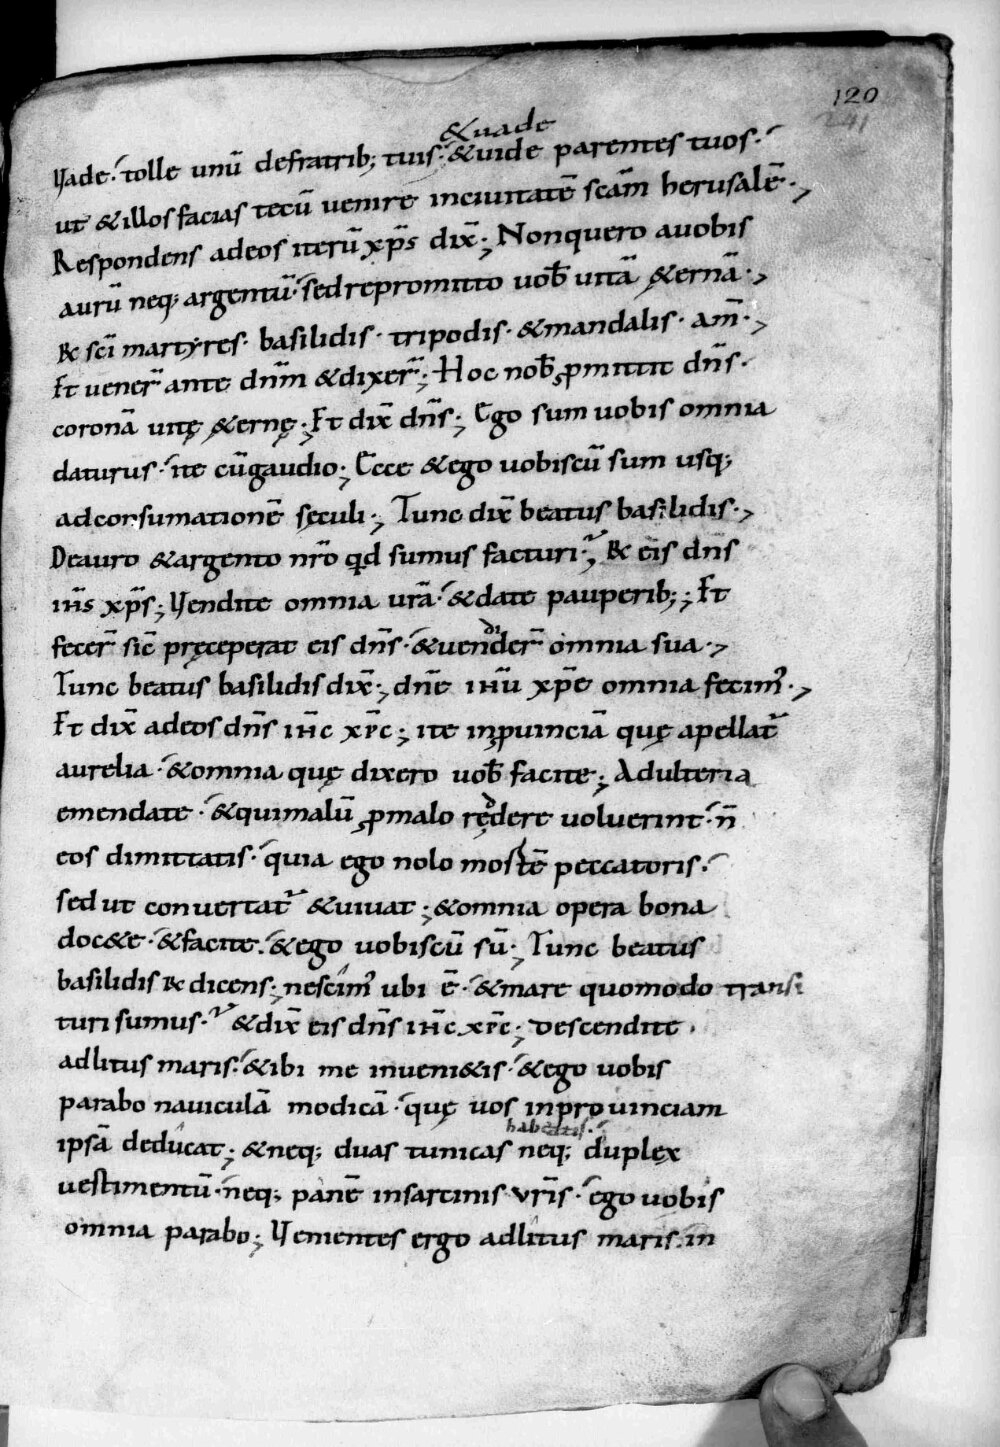 120
241
&uade
Uade · tolle unū defratrib; tuis · &uide parentes tuos ·
ut &illos facias tecū uenire inciuitatē scām herusalē ·,
Respondens adeos iterū xp̄s dix̄ ; Nonquero auobis
aurū neq; argentū · sedrepromitto uob̄ uitā &ernā ·,
& sc̄i martyres · basilidis · tripodis · &mandalis · am̄ ·,
Et uener̄ ante dn̄m &dixer̄ ; Hoc nob̄ ꝓmittit dn̄s ·
coronā uitę &ernę ; Et dix̄ dn̄s ; Ego sum uobis omnia
daturus · ite cūgaudio ; Ecce &ego uobiscū sum usq;
adconsumationē sęculi ; Tunc dix̄ beatus basilidis ·,
Deauro &argento nr̄o qd sumus facturi ? & eis dn̄s
ih̄s xp̄s ; Uendite omnia ur̄a · &date pauperib; ; Et
fecer̄ sic̄ pręceperat eis dn̄s · &uender̄ omnia sua ·,
Tunc beatus basilidis dix̄ ; dn̄e ih̄u xp̄e omnia fecim᾽ ·,
Et dix̄ adeos dn̄s ih̄c xp̄c ; ite inꝓuinciā quę apellat᷑
aurelia · &omnia quę dixero uob̄ facite ; Adulteria
emendate · &quimalū ꝓmalo ręddere uoluerint · n̄
eos dimittatis · quia ego nolo mortē peccatoris ·
sed ut conuertat᷑ &uiuat ; &omnia opera bona
doc&e · &facite · &ego uobiscū sū ; Tunc beatus
basilidis & dicens ; nescim᾽ ubi ē · &mare quomodo transi
turi sumus ? &dix̄ eis dn̄s ih̄c xp̄c ; Descendite
adlitus maris · &ibi me inueni&is · &ego uobis
parabo nauiculā modicā · quę uos inprouinciam
habeatis ·
ipsā deducat ; &neq; duas tunicas neq; duplex
uestimentū · neq; panē insarcinis ur̄is · ego uobis
omnia parabo ; Uenientes ergo adlitus maris · in